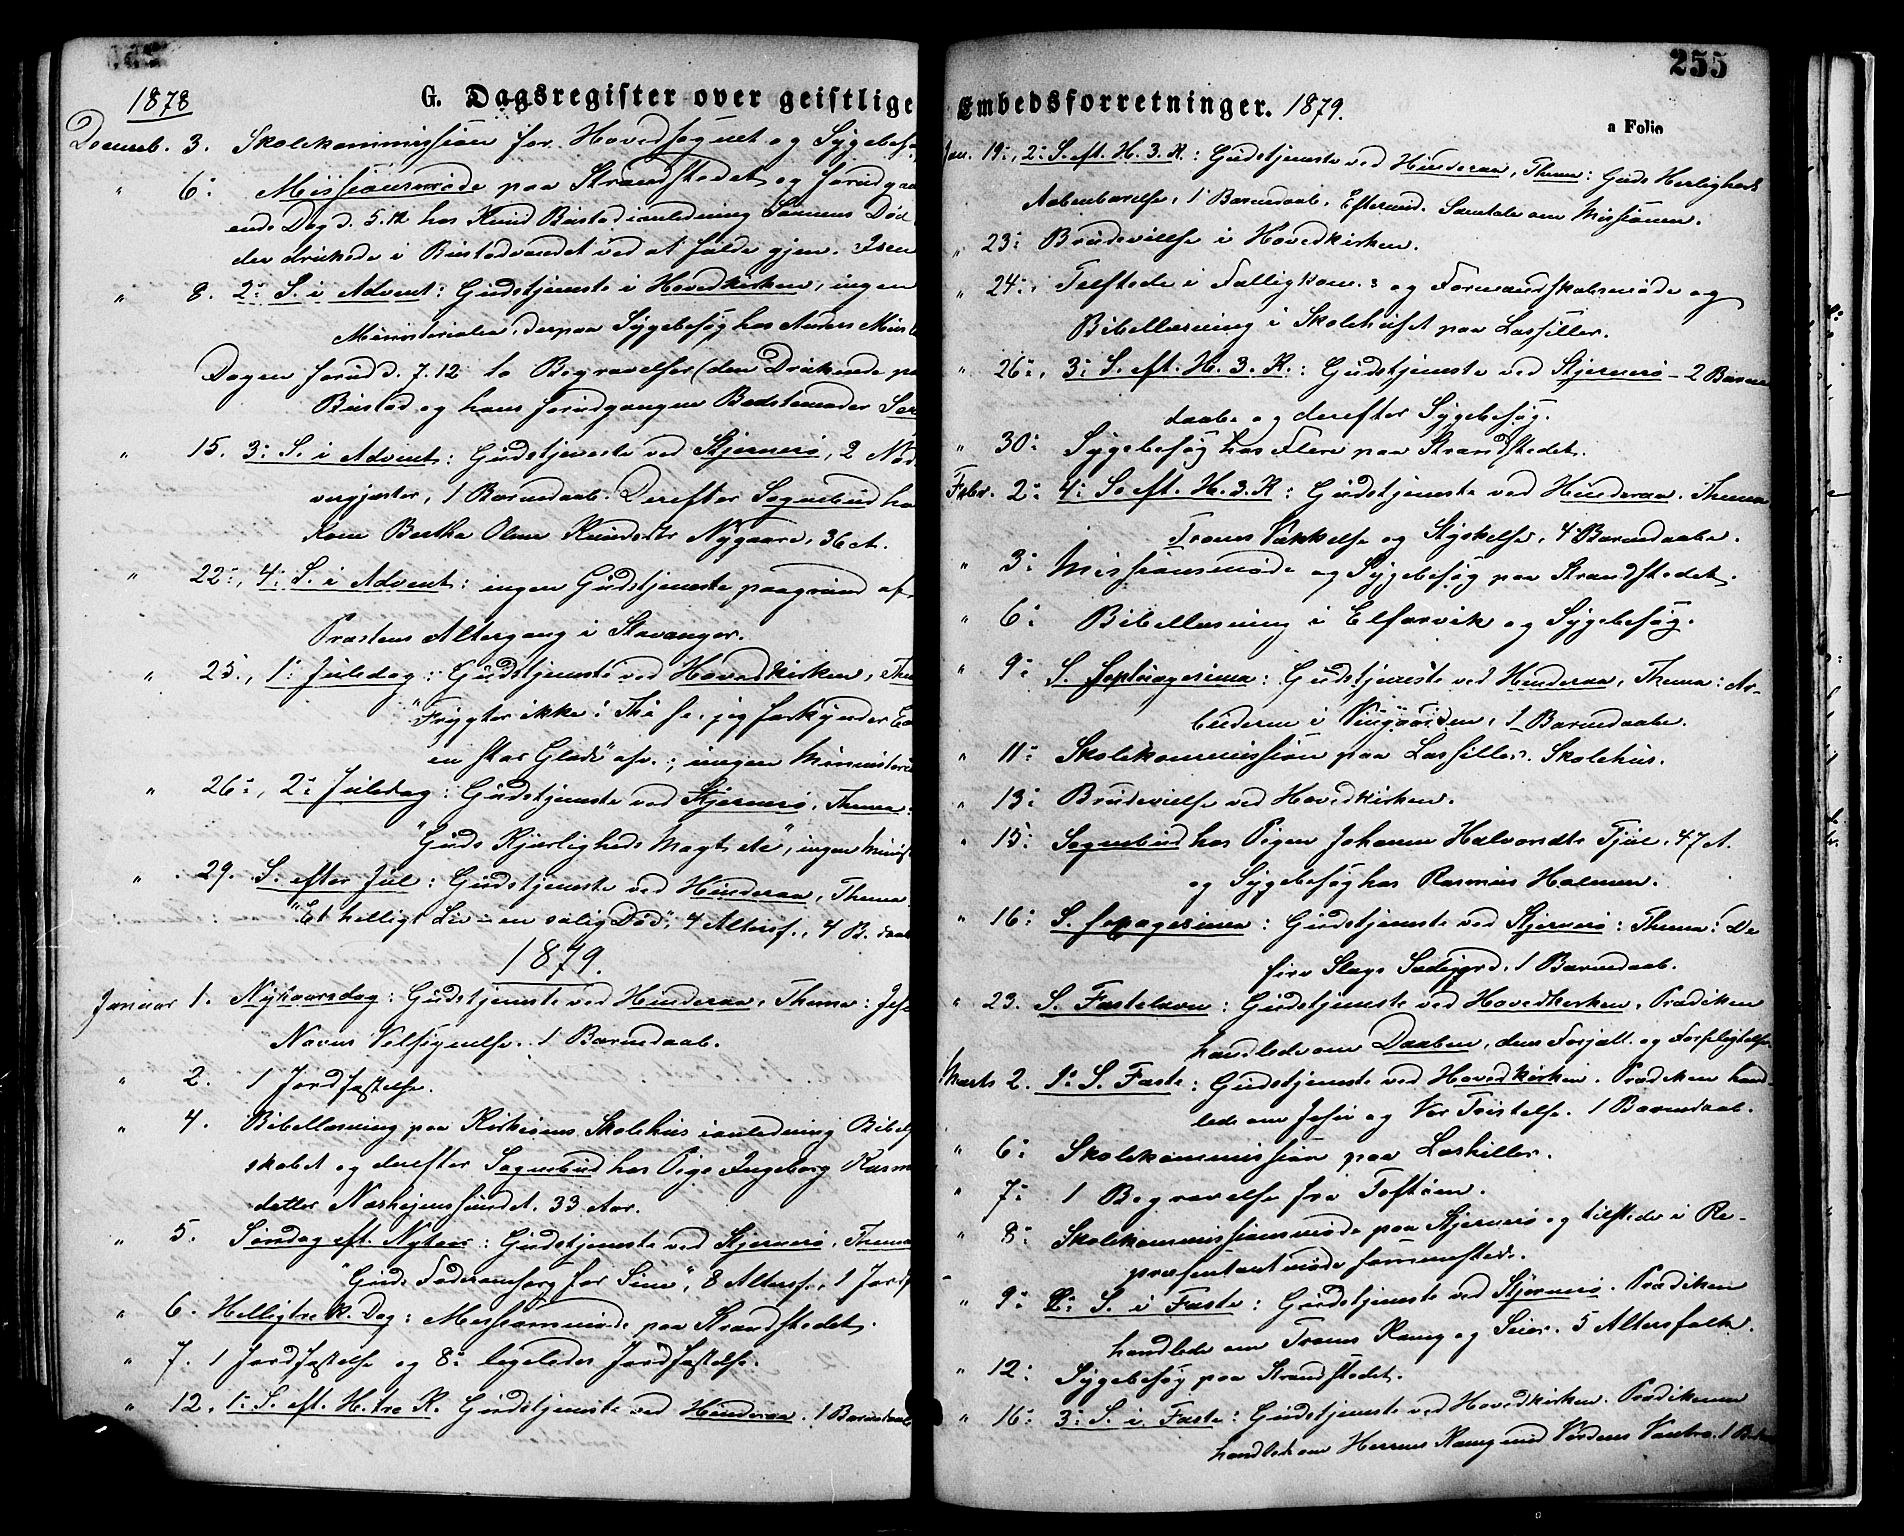 1878
G. Dagsregister over geistlige
Decemb. 3. Skolekommission for Hovedsognet og Sygebesø
" 6: Missionsmøde paa Strandstedet og forudgaa
ende Dag d. 5.12 hos Knud Bustad i anledning Sønnens Død
der druknede i Bustadvandet ved at falde gjen. Isen
" 8. 2: S. i Advent: Gudstjeneste i Hovedkirken, ingen
Ministerialia, derpaa Sygebesøg hos Anders
Dagen forud d. 7.12 to Begravelser (den Druknede paa
Bustad og hans forudgangne Bedstemoder
" 15. 3: S. i Advent: Gudstjeneste ved Stjernerø, 2 Nad
vergjæster, 1 Barnedaab. Derefter Sognebud ho
Kone Bertha Olene Knudsdtr Nygaard, 36 A.
" 22:, 4: S. i Advent: ingen Gudstjeneste paagrund af
Præstens Altergang i Stavanger.
" 25., 1: Juledag: Gudstjeneste ved Hovedkirken, Them
"Frygter ikke! Thi se, jeg forkynder E
en stor Glæde" osv.; ingen Ministeria
" 26:, 2: Juledag: Gudstjeneste ved Stjernerø, Thema:
"Guds Kjærligheds Magt etc", ingen Minist
" 29. S. efter Jul: Gudstjeneste ved Hinderaa, Thema
"Et helligt Liv – en salig Død", 4 Altersf., 4 B. daab
1879.
Januar 1. Nytaarsdag: Gudstjeneste ved Hinderaa, Thema: Jesu
Navns Velsignelse. 1 Barnedaab.
" 2. 1 Jordfæstelse.
" 4. Bibellæsning paa Kirkeøens Skolehus i anledning Bibels
skabet og derefter Sognebud hos Pige Ingeborg Rasm
datter Næshejmsundet, 33 Aar.
" 5. Søndag eft. Nytaar: Gudstjeneste ved Stjernerø, Thema
"Guds Faderomsorg for Sine", 8 Altersf., 1 Jordf
" 6. Helligtre K. Dag: Missionsmøde paa Strandstedet.
" 7. 1 Jordfæstelse og 8: ligeledes Jordfæstelse.
" 12. 1: S. eft. H. tre K. Gudstjeneste ved Hinderaa. 1 Barnedaab
255
Embedsforretninger. 1879.
a Folio
Jan. 19:, 2: S. eft. H. 3. K.: Gudstjeneste ved Hinderaa, Thema: Guds Herligheds
Aabenbarelse, 1 Barnedaab. Eftermid. Samtale om Missionen.
" 23: Brudevielse i Hovedkirken.
" 24:, Tilstede i Fattigkom.: og Formandskabsmøde og
Bibellæsning i Skolehuset paa Læshiller.
" 26:, 3: S. eft. H. 3. K.: Gudstjeneste ved Stjernerø – 2 Barne
daabe og derefter Sygebesøg.
" 30: Sygebesøg hos Flere paa Strandstedet.
Febr. 2: 4: S. eft. H. 3. K: Gudstjeneste ved Hinderaa. Thema
Troens Vækkelse og Styrkelse, 4 Barnedaabe.
" 3: Missionsmøde og Sygebesøg paa Strandstedet.
" 6: Bibellæsning i Elfarvik og Sygebesøg.
" 9: S. septuagesima: Gudstjeneste ved Hinderaa, Thema: Ar-
beiderne i Vingaarden, 1 Barnedaab.
" 11: Skolekommission paa Læshiller Skolehus.
" 13: Brudevielse ved Hovedkirken.
" 15: Sognebud hos Pigen Johanne Halvorsdtr Tjul, 47 A.
og Sygebesøg hos Rasmus Holmen.
" 16: S. sexagesima: Gudstjeneste ved Stjernerø: Thema: De
fire Slags Sædejord. 1 Barnedaab.
" 23. S. Fastelavn: Gudstjeneste ved Hovedkirken, Prædiken
handlede om Daaben, dens Forjætt. og Forpligtelser.
Marts 2. 1: S. Faste: Gudstjeneste ved Hovedkirken. Prædiken hand-
lede om Jesu og Vor Fristelse. 1 Barnedaab.
" 6: Skolekommission paa Læshiller.
" 7: 1 Begravelse fra Toftøen.
" 8: Skolekommissionsmøde paa Stjernerø og tilstede i Re-
præsentantmøde sammesteds.
" 9: 2: S. i Faste: Gudstjeneste ved Stjernerø. Prædiken
handlede om Troens Kamp og Seier. 5 Altersfolk.
" 12: Sygebesøg paa Strandstedet.
" 16: 3: S. i Faste: Gudstjeneste ved Hovedkirken. Prædikenen
handlede om Herrens Kamp mod Verdens Vantro. 1 B